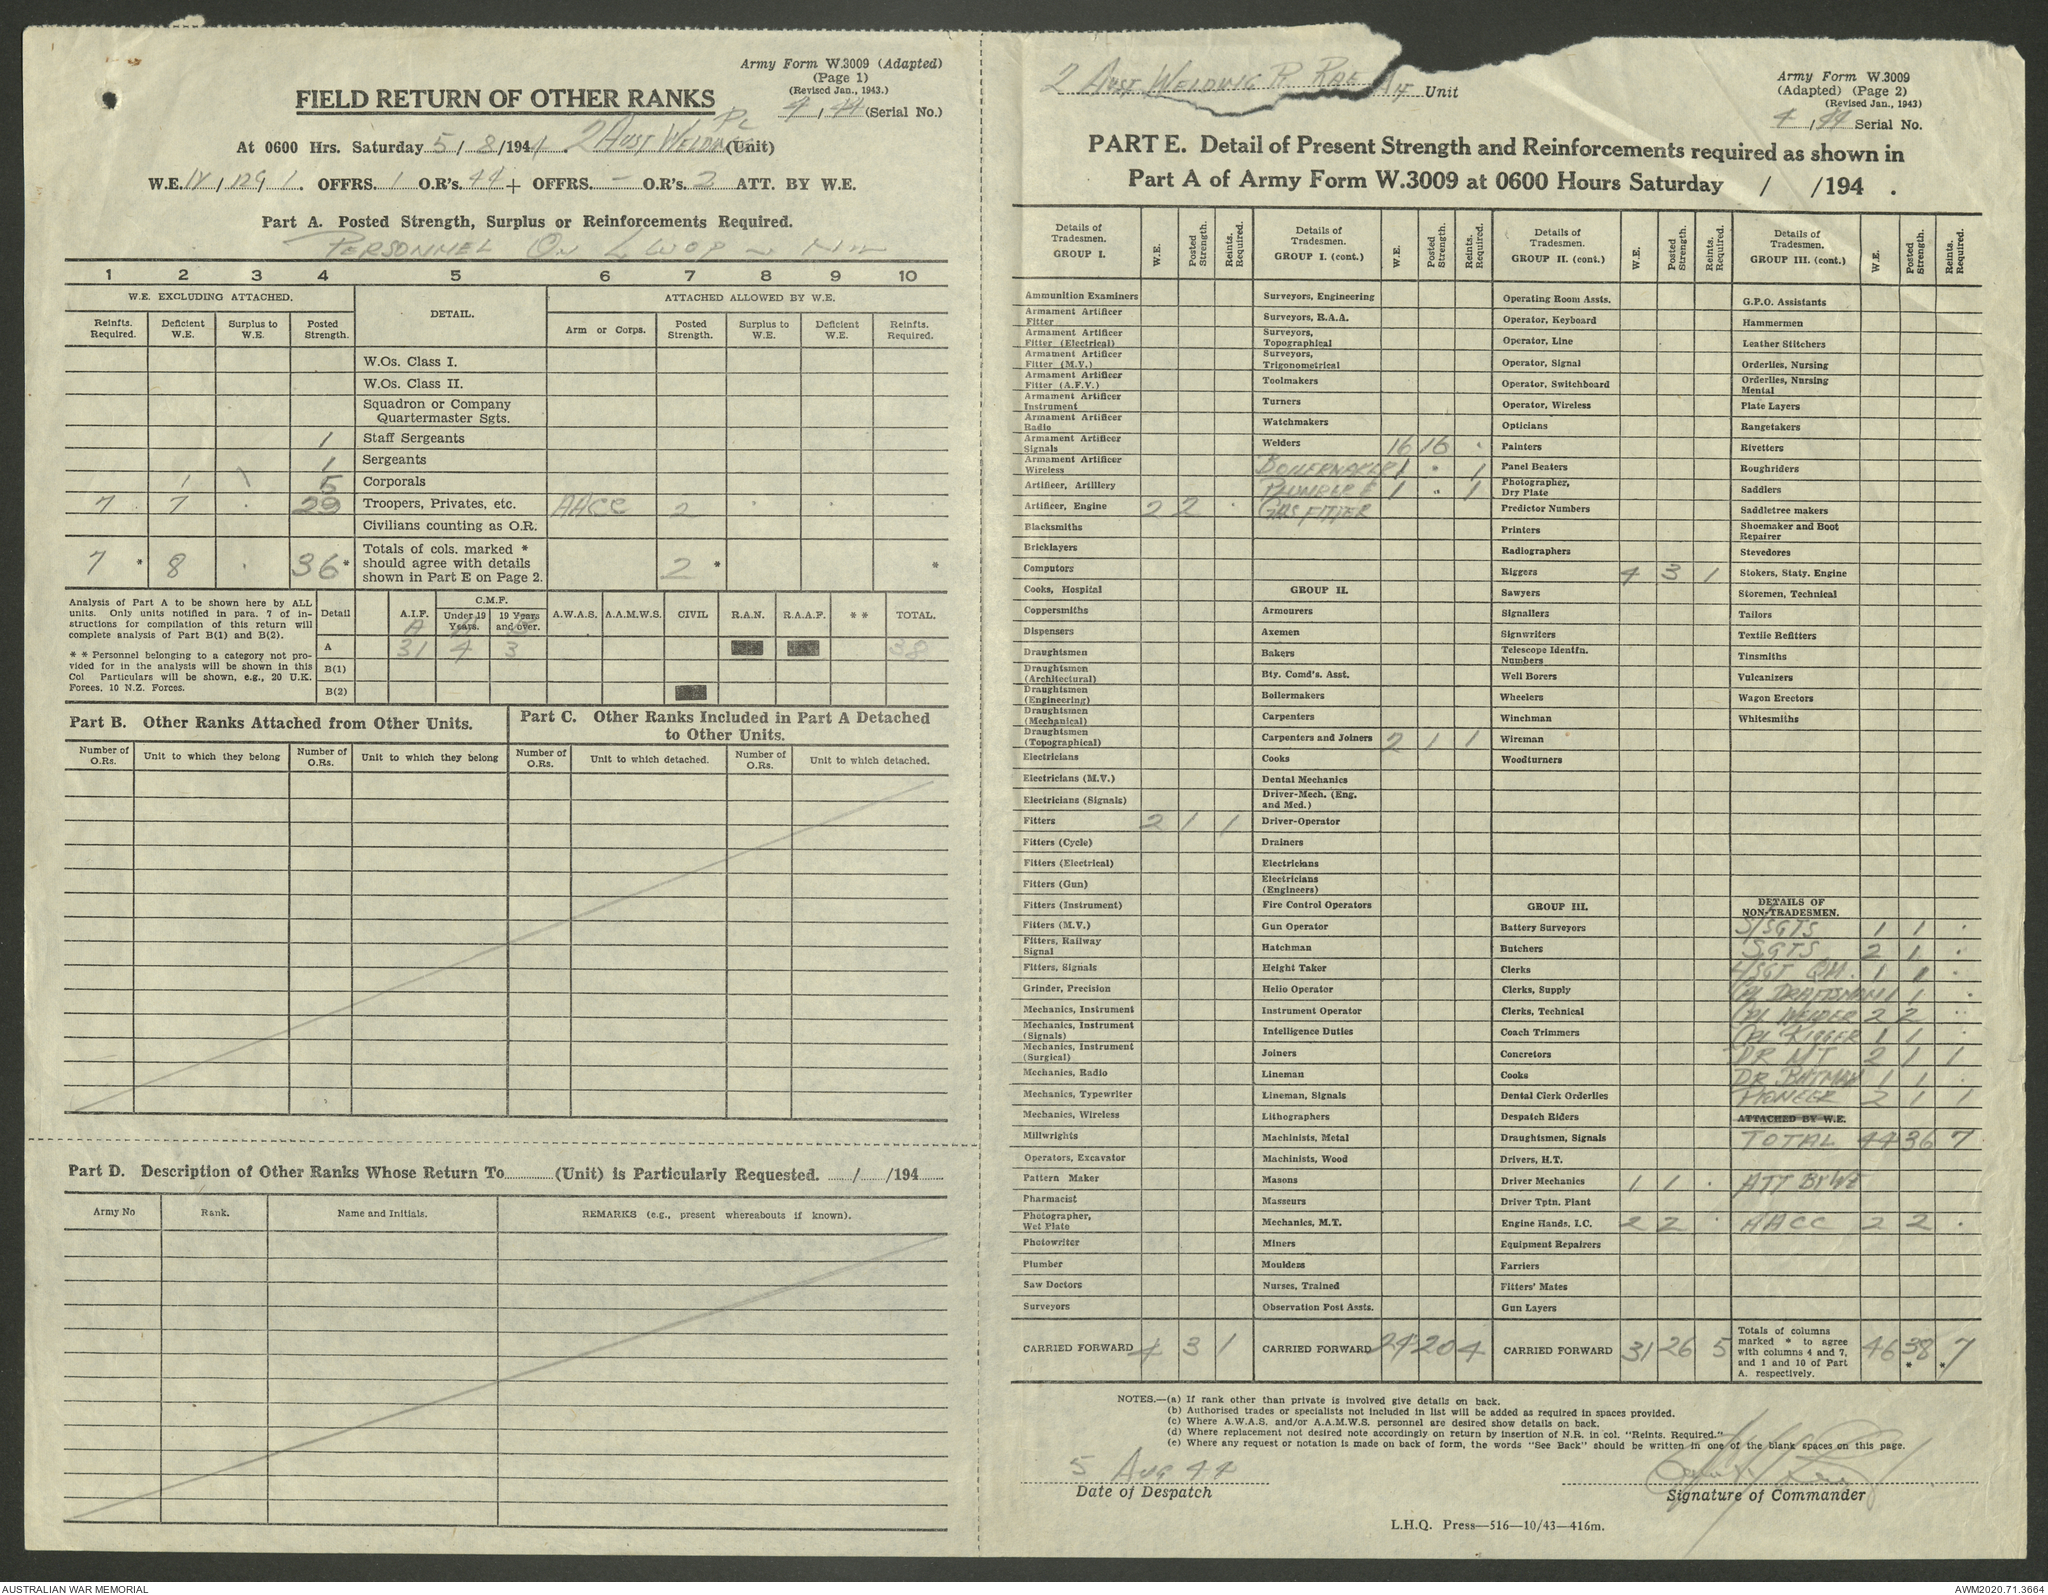 Army Form W.3009 (Adapted)
(Page 1)
(Revised Jan., 1943.)
4 / 44 (Serial No.)
FIELD RETURN OF OTHER RANKS
At 0600 Hrs. Saturday 5 / 8 / 1944. 2 Aust Welding Pl (Unit)
W.E. IV / 129 / . OFFRS. 1 O.R's. 44 + OFFRS. - O.R's. 2 ATT. BY W.E.
Part A. Posted Strength, Surplus or Reinforcements Required.
PERSONNEL ON LWOP — NIL
1 2 3 4 5 6 7 8 9 10
W.E. EXCLUDING ATTACHED. DETAIL. ATTACHED ALLOWED BY W.E.
Reinfts. Required. Deficient W.E. Surplus to W.E. Posted Strength. Arm or Corps. Posted Strength. Surplus to W.E. Deficient W.E. Reinfts. Required.
W.Os. Class I.
W.Os. Class II.
Squadron or Company Quartermaster Sgts.
1 Staff Sergeants
1 Sergeants
1 \ 5 Corporals
7 7 . 29 Troopers, Privates, etc. AACC 2 . . .
Civilians counting as O.R.
7 * 8 . 36 * Totals of cols. marked * should agree with details shown in Part E on Page 2. 2 * *
Analysis of Part A to be shown here by ALL units. Only units notified in para. 7 of instructions for compilation of this return will complete analysis of Part B(1) and B(2).
* * Personnel belonging to a category not provided for in the analysis will be shown in this Col Particulars will be shown, e.g., 20 U.K. Forces. 10 N.Z. Forces.
Detail A.I.F. C.M.F. Under 19 Years. 19 Years and over. A.W.A.S. A.A.M.W.S. CIVIL R.A.N. R.A.A.F. * * TOTAL.
A 31 4 3 38
B(1)
B(2)
Part B. Other Ranks Attached from Other Units.
Number of O.Rs. Unit to which they belong Number of O.Rs. Unit to which they belong
Part C. Other Ranks Included in Part A Detached to Other Units.
Number of O.Rs. Unit to which detached. Number of O.Rs. Unit to which detached.
Part D. Description of Other Ranks Whose Return To (Unit) is Particularly Requested. / /194
Army No Rank. Name and Initials. REMARKS (e.g., present whereabouts if known).
2 Aust Welding Pl RAE AIF Unit
Army Form W.3009
(Adapted) (Page 2)
(Revised Jan., 1943)
4 / 44 Serial No.
PART E. Detail of Present Strength and Reinforcements required as shown in
Part A of Army Form W.3009 at 0600 Hours Saturday / /194 .
Details of Tradesmen. GROUP I. W.E. Posted Strength. Reints. Required.
Ammunition Examiners
Armament Artificer Fitter
Armament Artificer Fitter (Electrical)
Armament Artificer Fitter (M.V.)
Armament Artificer Fitter (A.F.V.)
Armament Artificer Instrument
Armament Artificer Radio
Armament Artificer Signals
Armament Artificer Wireless
Artificer, Artillery
Artificer, Engine 2 2 .
Blacksmiths
Bricklayers
Computors
Cooks, Hospital
Coppersmiths
Dispensers
Draughtsmen
Draughtsmen (Architectural)
Draughtsmen (Engineering)
Draughtsmen (Mechanical)
Draughtsmen (Topographical)
Electricians
Electricians (M.V.)
Electricians (Signals)
Fitters 2 1 1
Fitters (Cycle)
Fitters (Electrical)
Fitters (Gun)
Fitters (Instrument)
Fitters (M.V.)
Fitters, Railway Signal
Fitters, Signals
Grinder, Precision
Mechanics, Instrument
Mechanics, Instrument (Signals)
Mechanics, Instrument (Surgical)
Mechanics, Radio
Mechanics, Typewriter
Mechanics, Wireless
Millwrights
Operators, Excavator
Pattern Maker
Pharmacist
Photographer, Wet Plate
Photowriter
Plumber
Saw Doctors
Surveyors
CARRIED FORWARD 4 3 1
Details of Tradesmen. GROUP I. (cont.) W.E. Posted Strength. Reints. Required.
Surveyors, Engineering
Surveyors, R.A.A.
Surveyors, Topographical
Surveyors, Trigonometrical
Toolmakers
Turners
Watchmakers
Welders 16 16 .
BOILERMAKER 1 . 1
PLUMBER & 1 . 1
GAS FITTER
GROUP II.
Armourers
Axemen
Bakers
Bty. Comd's. Asst.
Boilermakers
Carpenters
Carpenters and Joiners 2 1 1
Cooks
Dental Mechanics
Driver-Mech. (Eng. and Med.)
Driver-Operator
Drainers
Electricians
Electricians (Engineers)
Fire Control Operators
Gun Operator
Hatchman
Height Taker
Helio Operator
Instrument Operator
Intelligence Duties
Joiners
Lineman
Lineman, Signals
Lithographers
Machinists, Metal
Machinists, Wood
Masons
Masseurs
Mechanics, M.T.
Miners
Moulders
Nurses, Trained
Observation Post Assts.
CARRIED FORWARD 24 20 4
Details of Tradesmen. GROUP II. (cont.) W.E. Posted Strength. Reints. Required.
Operating Room Assts.
Operator, Keyboard
Operator, Line
Operator, Signal
Operator, Switchboard
Operator, Wireless
Opticians
Painters
Panel Beaters
Photographer, Dry Plate
Predictor Numbers
Printers
Radiographers
Riggers 4 3 1
Sawyers
Signallers
Signwriters
Telescope Identfn. Numbers
Well Borers
Wheelers
Winchman
Wireman
Woodturners
GROUP III.
Battery Surveyors
Butchers
Clerks
Clerks, Supply
Clerks, Technical
Coach Trimmers
Concretors
Cooks
Dental Clerk Orderlies
Despatch Riders
Draughtsmen, Signals
Drivers, H.T.
Driver Mechanics 1 1 .
Driver Tptn. Plant
Engine Hands, I.C. 2 2 .
Equipment Repairers
Farriers
Fitters' Mates
Gun Layers
CARRIED FORWARD 31 26 5
Details of Tradesmen. GROUP III. (cont.) W.E. Posted Strength. Reints. Required.
G.P.O. Assistants
Hammermen
Leather Stitchers
Orderlies, Nursing
Orderlies, Nursing Mental
Plate Layers
Rangetakers
Rivetters
Roughriders
Saddlers
Saddletree makers
Shoemaker and Boot Repairer
Stevedores
Stokers, Staty. Engine
Storemen, Technical
Tailors
Textile Refitters
Tinsmiths
Vulcanizers
Wagon Erectors
Whitesmiths
DETAILS OF NON-TRADESMEN.
S/SGTS 1 1 .
SGTS 2 1 .
L/SGT QM. 1 1 .
CPL DRAFTSMAN 1 1 .
CPL WELDER 2 2 .
CPL RIGGER 1 1 .
DR MT 2 1 1
DR BATMAN 1 1 .
PIONEER 2 1 1
ATTACHED BY W.E.
TOTAL 44 36 7
ATT BY WE
AACC 2 2 .
Totals of columns marked * to agree with columns 4 and 7, and 1 and 10 of Part A. respectively. 46 38 * * 7
NOTES.—(a) If rank other than private is involved give details on back.
(b) Authorised trades or specialists not included in list will be added as required in spaces provided.
(c) Where A.W.A.S. and/or A.A.M.W.S. personnel are desired show details on back.
(d) Where replacement not desired note accordingly on return by insertion of N.R. in col. "Reints. Required."
(e) Where any request or notation is made on back of form, the words "See Back" should be written in one of the blank spaces on this page.
5 Aug 44
Date of Despatch
Signature of Commander
L.H.Q. Press—516—10/43—416m.
AUSTRALIAN WAR MEMORIAL
AWM2020.71.3664